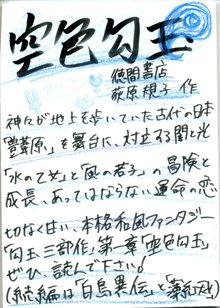 空色勾玉
徳間書店
荻原規子 作
神々が地上を歩いていた古代の日本
「豊葦原」を舞台に、対立する闇と光
「水の乙女」と「風の若子」の冒険と
成長、あってはならない運命の恋
切なく甘い、本格和風ファンタジー
「勾玉三部作」第一章「空色勾玉」
ぜひ、読んで下さい!
(続編は「白鳥異伝」と「薄紅天女」